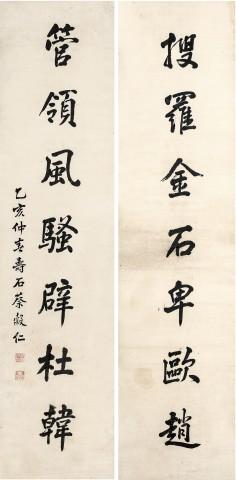 搜羅金石卑歐趙
管領風騷辟杜韓
乙亥仲春壽石蔡毅仁